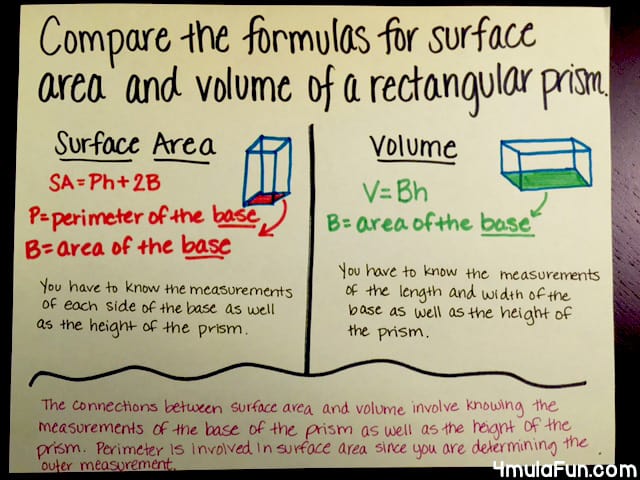 Compare the formulas for surface
area and volume of a rectangular prism.
Surface Area
SA=Ph+2B
P=perimeter of the base
B=area of the base
You have to know the measurements
of each side of the base as well
as the height of the prism.
Volume
V=Bh
B=area of the base
You have to know the measurements
of the length and width of the
base as well as the height of
the prism.
The connections between surface area and volume involve knowing the
measurements of the base of the prism as well as the height of the
prism. Perimeter is involved in surface area since you are determining the
outer measurement.
4mulaFun.com